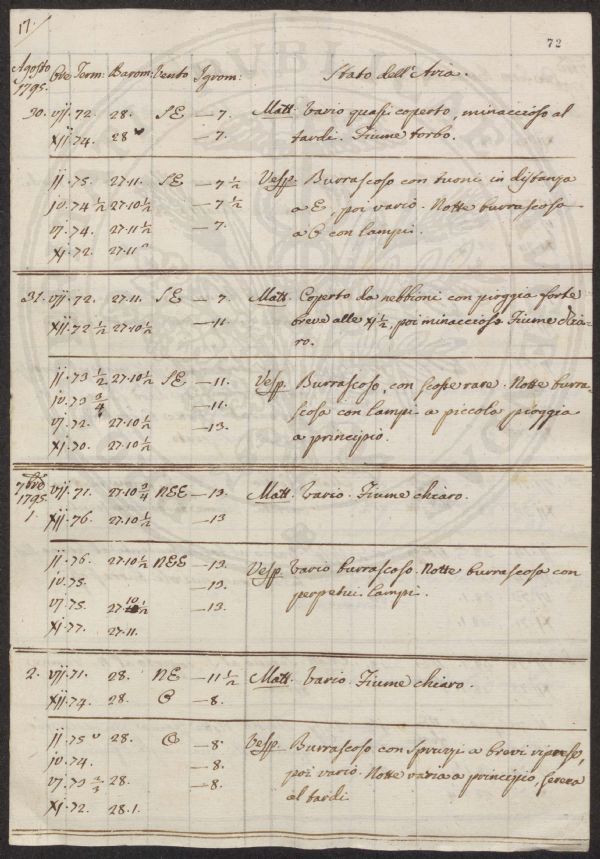 17.
72
Agosto 1795. Ore Term: Barom: Vento Igrom: Stato dell'Aria.
30. vij. 72. 28. SE — 7. Matt. Vario quasi coperto, minaccioso al
xij. 74. 28 — 7. tardi. Fiume torbo.
ij. 75. 27.11. SE — 7 1/2 Vesp. Burrascoso con tuoni in distanza
iv. 74 1/2 27.10 1/2 — 7 1/2 a E, poi vario. Notte burrascosa
vj. 74. 27.11 1/2 — 7. a O con lampi.
xj. 72. 27.11
31. vij. 72. 27.11. SE — 7. Matt. Coperto da nebbioni con pioggia forte
xij. 72 1/2 27.10 1/2 — 11. breve alle xj 1/2, poi minaccioso. Fiume chia-
ro.
ij. 73 1/2 27.10 1/2 SE — 11. Vesp. Burrascoso, con scosse rare. Notte burra-
iv. 73 3/4 — 11. scosa con lampi e piccola pioggia
vj. 72. 27.10 1/2 — 13. a principio.
xj. 70. 27.10 1/2
7bre 1795.
1. vij. 71. 27.10 3/4 NEE — 13. Matt. Vario. Fiume chiaro.
xij. 76. 27.10 1/2 — 13
ij. 76. 27.10 1/2 NEE — 13. Vesp. Vario burrascoso. Notte burrascosa con
iv. 75. — 13. perpetui lampi.
vj. 75. 27.10 1/2 — 13.
xj. 77. 27.11.
2. vij. 71. 28. NE — 11 1/2 Matt. Vario. Fiume chiaro.
xij. 74. 28. O — 8.
ij. 75 28. O — 8. Vesp. Burrascoso con spruzzi a brevi riprese,
iv. 74. — 8. poi vario. Notte varia a principio, serena
vj. 73 28. — 8. al tardi.
xj. 72. 28.1.